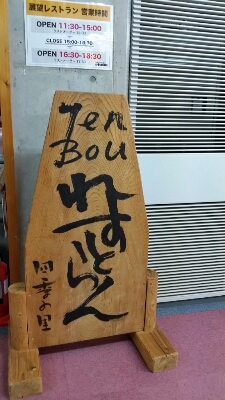 展望レストラン 営業時間
OPEN 11:30-15:00
CLOSE 15:00-16:30
OPEN 16:30-18:30
Ten
Bou
れすとらん
四季の里